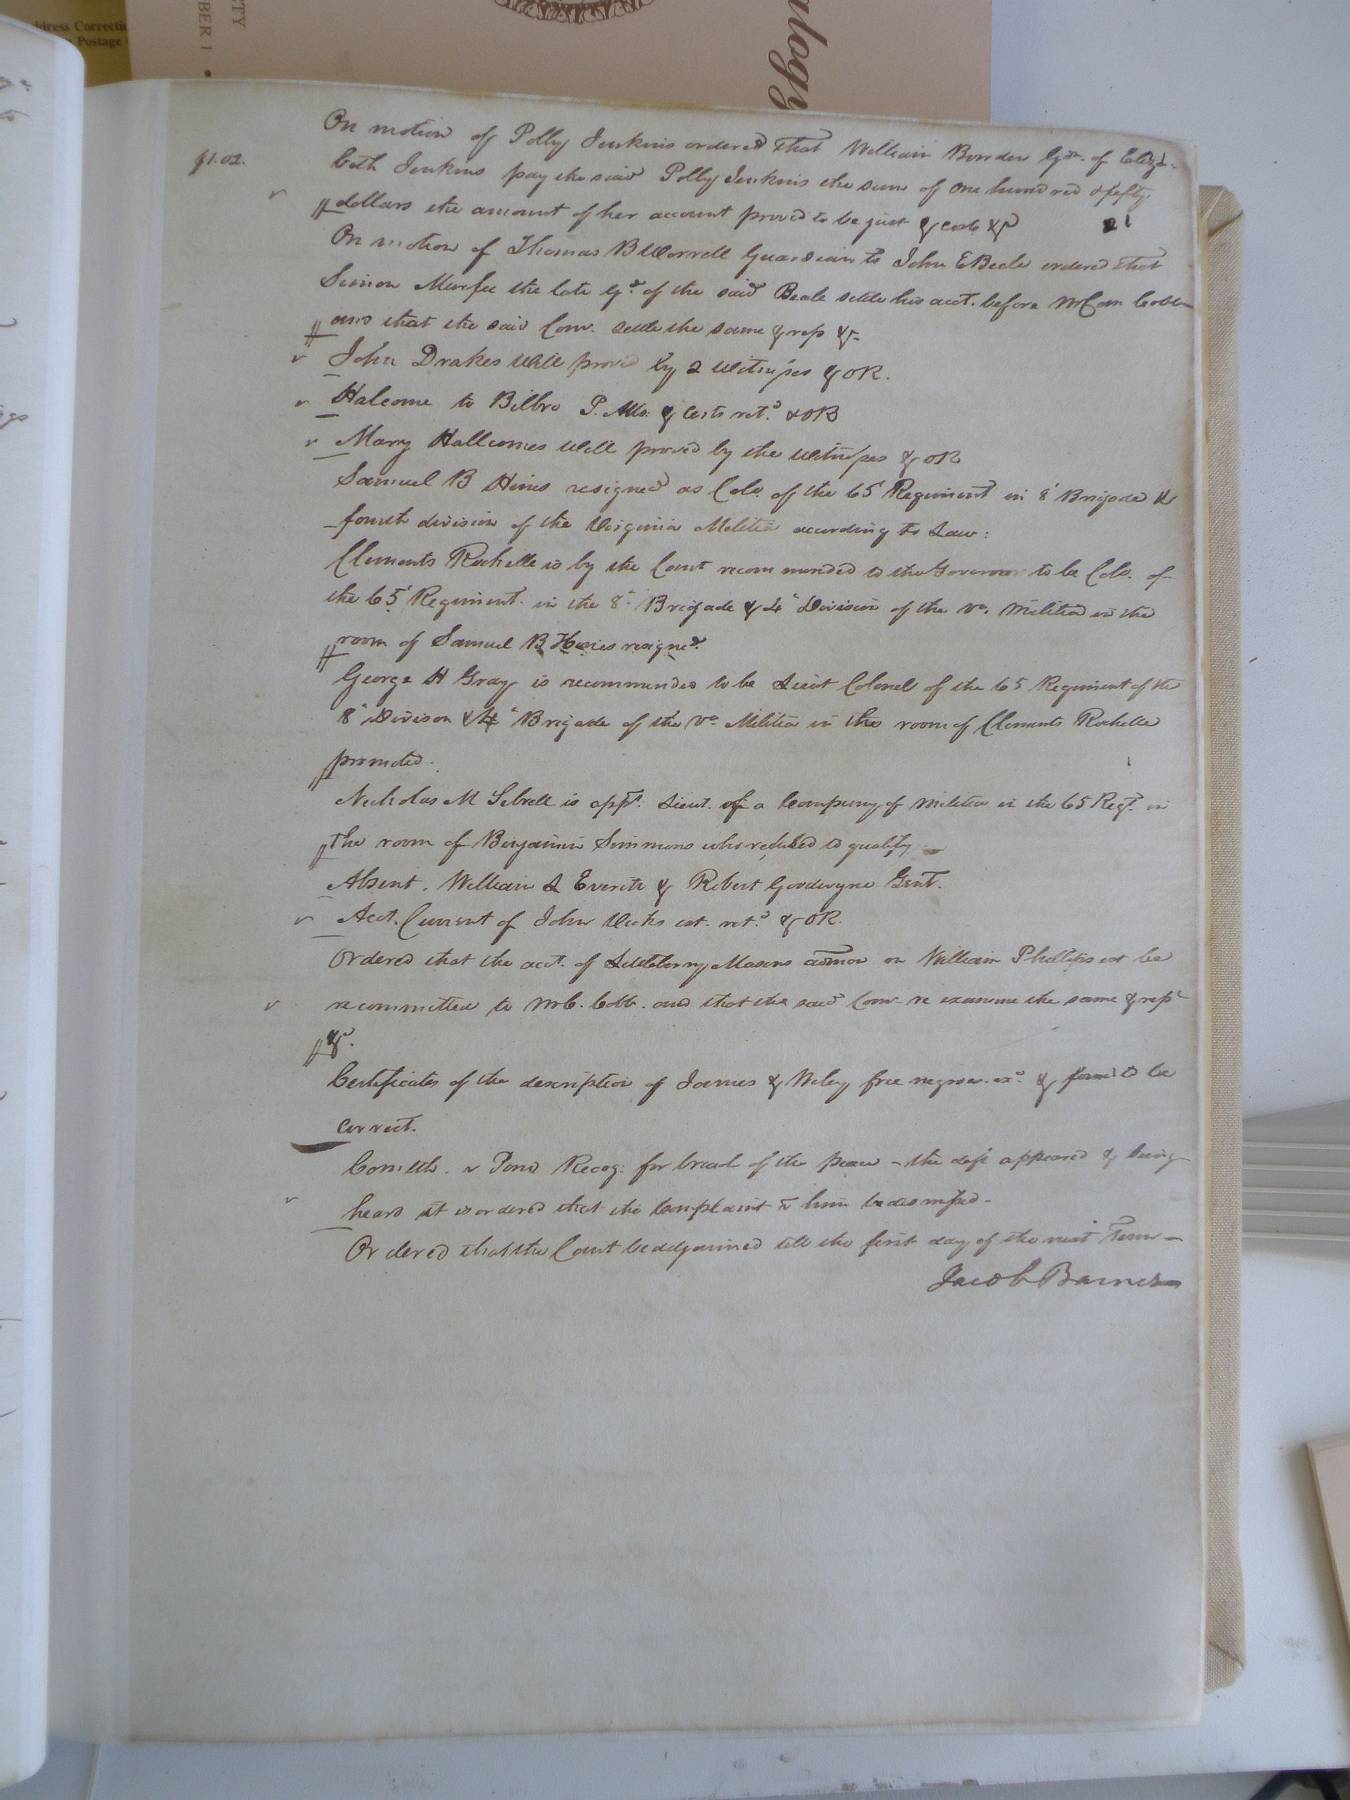 dress Correction
Postage
BER 1 •
TY
alogy
On motion of Polly Jenkins ordered that William Bowden Gdn. of Eliza-
$1.02.
beth Jenkins pay the said Polly Jenkins the sum of one hundred & fifty
dollars the amount of her account proved to be just & costs &c
On motion of Thomas B Worrell Guardian to John E Beale ordered that
Simon Murfee the late Gdn. of the said Beale settle his acct. before Wm Cobb
and that the said Com. settle the same & rep &c
John Drakes Will proved by 2 Witnesses & OR.
Halcome to Bilbro P. Atto. & Certs retd. & OR
Mary Hallcomes Will proved by the Witnesses & OR
Samuel B Hines resigned as Colo. of the 65 Regiment in 8 Brigade &
fourth division of the Virginia Militia according to Law:
Clements Rochelle is by the Court recommended to the Governor to be Colo. of
the 65 Regiment in the 8th Brigade & 4 Division of the Va. Militia in the
room of Samuel B Hines resigned.
George H Gray is recommended to be Lieut Colonel of the 65 Regiment of the
8 Divison & 4 Brigade of the Va. Militia in the room of Clements Rochelle
promoted.
Nicholas M Sebrell is appd. Lieut. of a Company of Militia in the 65 Regt. in
the room of Benjamin Simmons who refused to qualify
Absent. William & Robert Goodwyne Gent.
Acct. Current of John est. retd. & OR.
Ordered that the acct. of Littleberry Masons admor on William Phillips est be
recommitted to Wm C. Cobb. and that the said Com re examine the same & rept
&c.
Certificates of the description of James & Wiley free negroes exd. & found to be
correct.
Comwth. v Pond Recog. for breach of the peace - the deft appeared & being
heard it is ordered that the Complaint vs him be dismissed.
Ordered that the Court be adjourned till the first day of the next Term -
Jacob Barnes